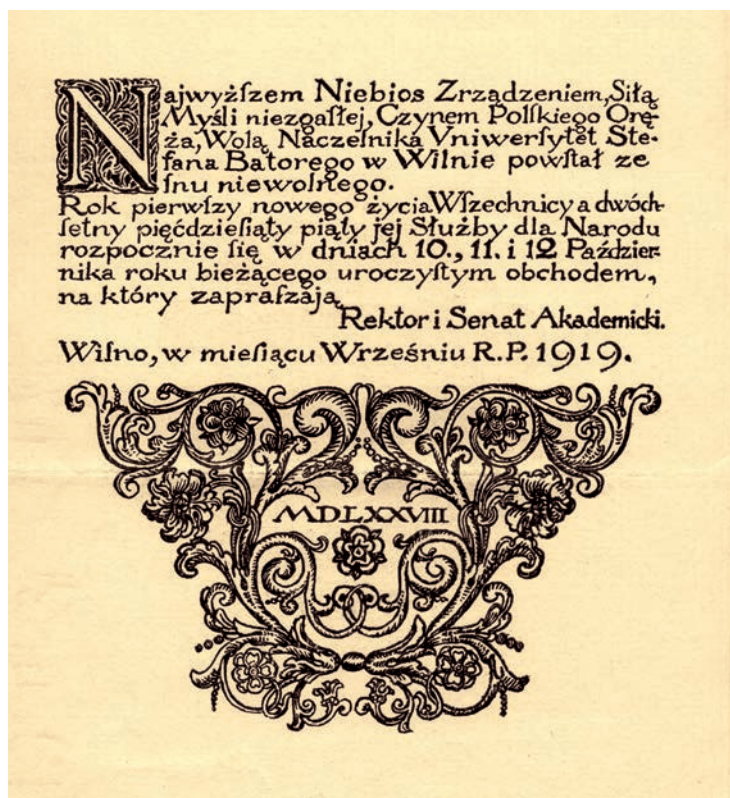 Najwyżſzem Niebios Zrządzeniem, Siłą
Myśli niezgaſłej, Czynem Polſkiego Orę-
ża, Wolą Naczelnika Vniwerſytet Ste-
fana Batorego w Wilnie powſtał ze
ſnu niewolnego.
Rok pierwſzy nowego życia Wſzechnicy a dwóch-
ſetny pięćdzieſiąty piąty jej Służby dla Narodu
rozpocznie ſię w dniach 10., 11. i 12 Paździer-
nika roku bieżącego uroczyſtym obchodem,
na który zapraſzają
Rektor i Senat Akademicki.
Wilno, w mieſiącu Wrześniu R.P. 1919.
MDLXXVIII